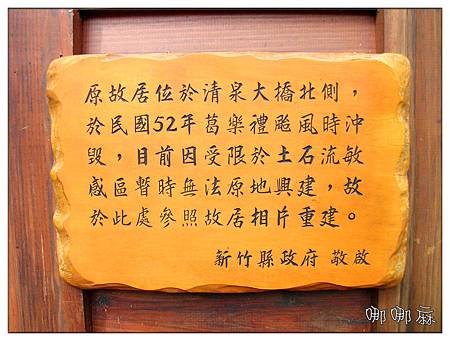 原故居位於清泉大橋北側，
於民國52年葛樂禮颱風時沖
毀，目前因受限於土石流敏
感區暫時無法原地興建，故
於此處參照故居相片重建。
新竹縣政府 敬啟
哪哪麻